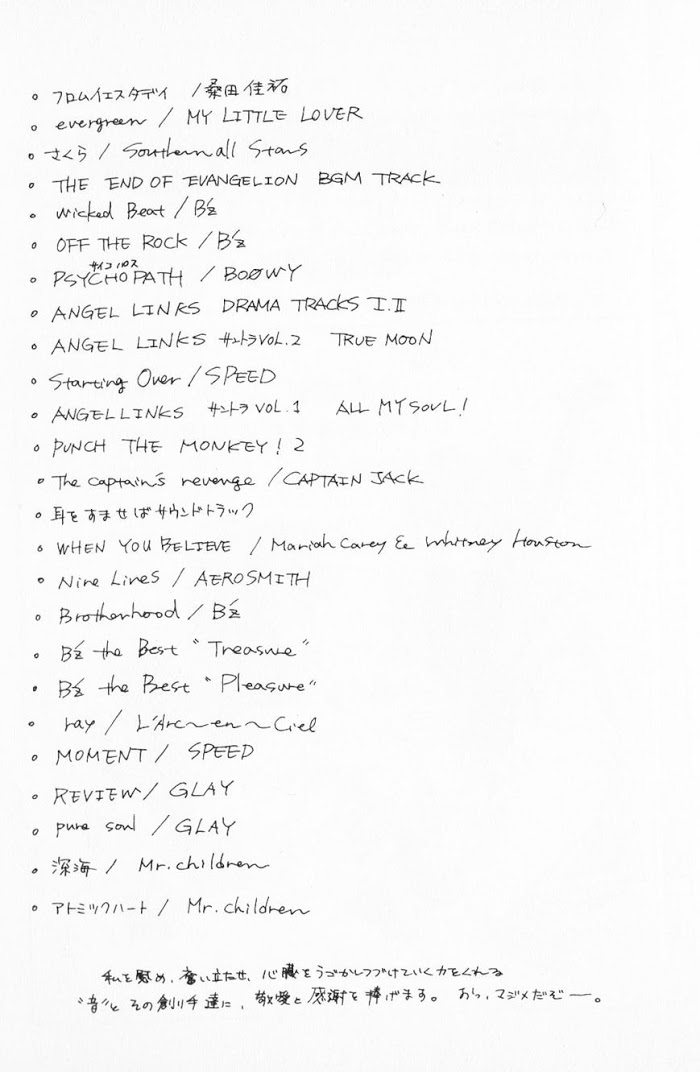 。フロムイエスタデイ /桑田佳祐
。evergreen / MY LITTLE LOVER
。さくら / Southern all Stars
。THE END OF EVANGELION BGM TRACK
。wicked Beat / B'z
。OFF THE ROCK / B'z
サイコパス
。PSYCHOPATH / BOØWY
。ANGEL LINKS DRAMA TRACKS I.II
。ANGEL LINKS サントラVOL.2 TRUE MOON
。Starting Over / SPEED
。ANGEL LINKS サントラ VOL.1 ALL MY SOUL!
。PUNCH THE MONKEY! 2
。The captain's revenge / CAPTAIN JACK
。耳をすませばサウンドトラック
。WHEN YOU BELIEVE / Mariah Carey & Whitney Houston
。Nine Lives / AEROSMITH
。Brotherhood / B'z
。B'z the Best "Treasure"
。B'z the Best "Pleasure"
。ray / L'Arc〜en〜Ciel
。MOMENT / SPEED
。REVIEW / GLAY
。pure soul / GLAY
。深海 / Mr.children
。アトミックハート / Mr.children
私を慰め、奮い立たせ、心臓をうごかしつづけていく力をくれる
"音"と その創り手達に、敬愛と感謝を捧げます。 おっ、マジメだぞー。